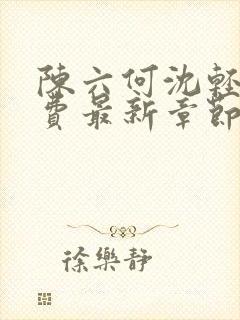 陳六何沈輕
費最新章節
徐樂靜